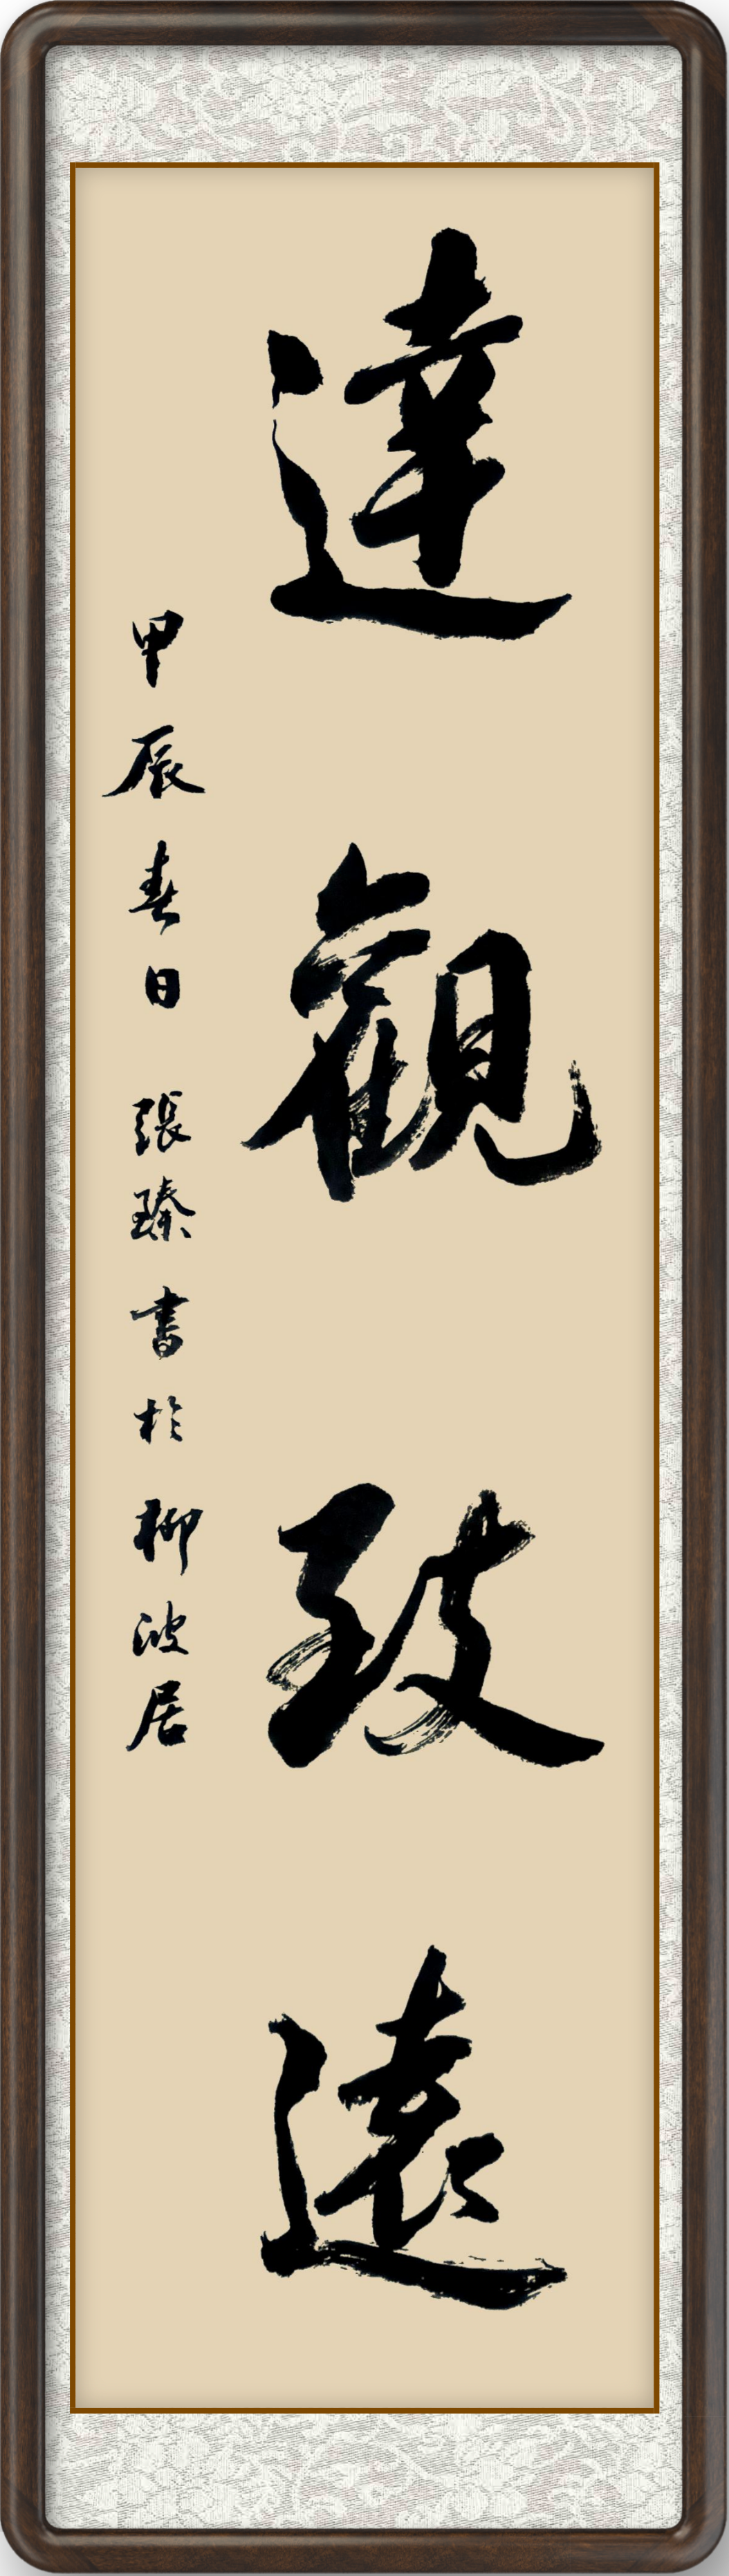 達觀致遠
甲辰春日 張臻書於柳波居